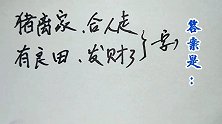 猪离家、合人走
有良田、发财了}一字
答案是：